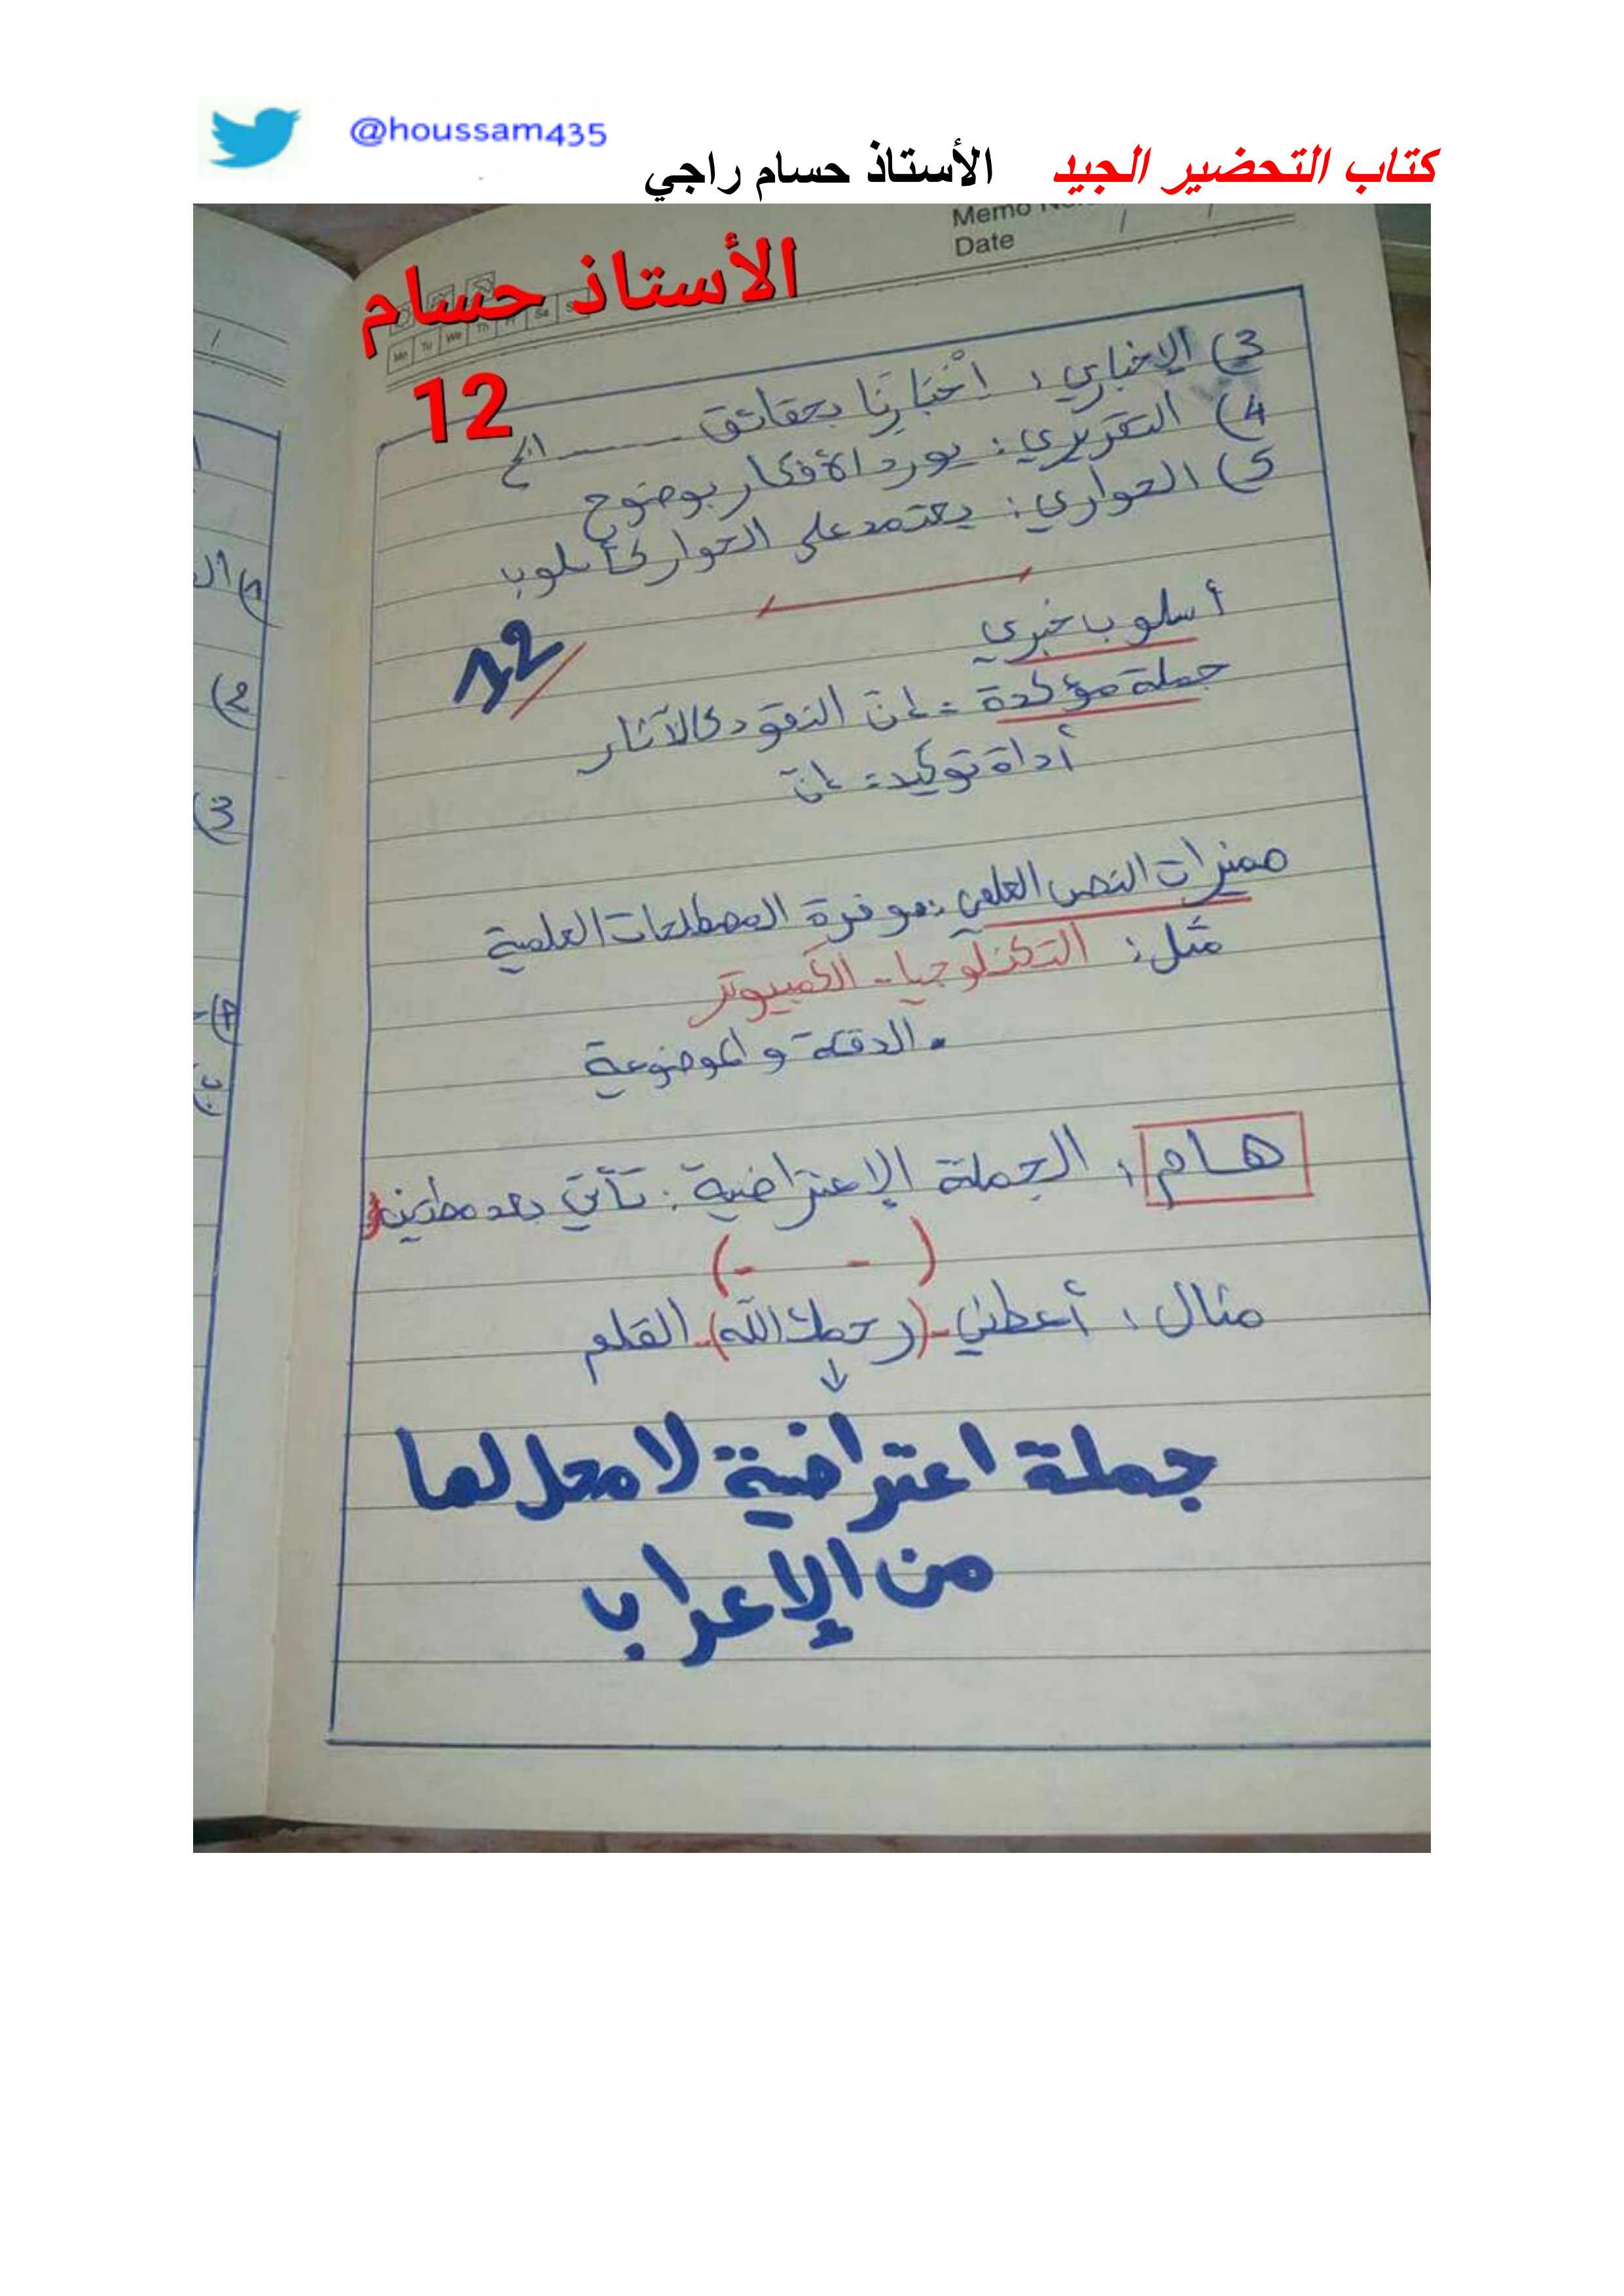 @houssam435
كتاب التحضير الجيد الأستاذ حسام راجي
Memo
Date / /
الأستاذ حسام
Mo Tu We Th Fr Sa
12
3) الإخباري : اخْبَارِنَا بحقائق ------ الخ
4) التقريري : يورد الأفكار بوضوح
5) الحواري : يعتمد على الحوار كأسلوب
12
أسلوب خبري
جملة مؤكدة = إن النقود كالآثار
أداة توكيد = إنّ
مميزات النص العلمي : وفرة المصطلحات العلمية
مثل : التكنلوجيا - الكمبيوتر
. الدقة والموضوعية
هام : الجملة الإعتراضية : تأتي بعد مطتين
( - - )
مثال : أعطني -(رحمك الله)- القلم
↓
جملة اعتراضية لا محل لها
من الإعراب
2)
3)